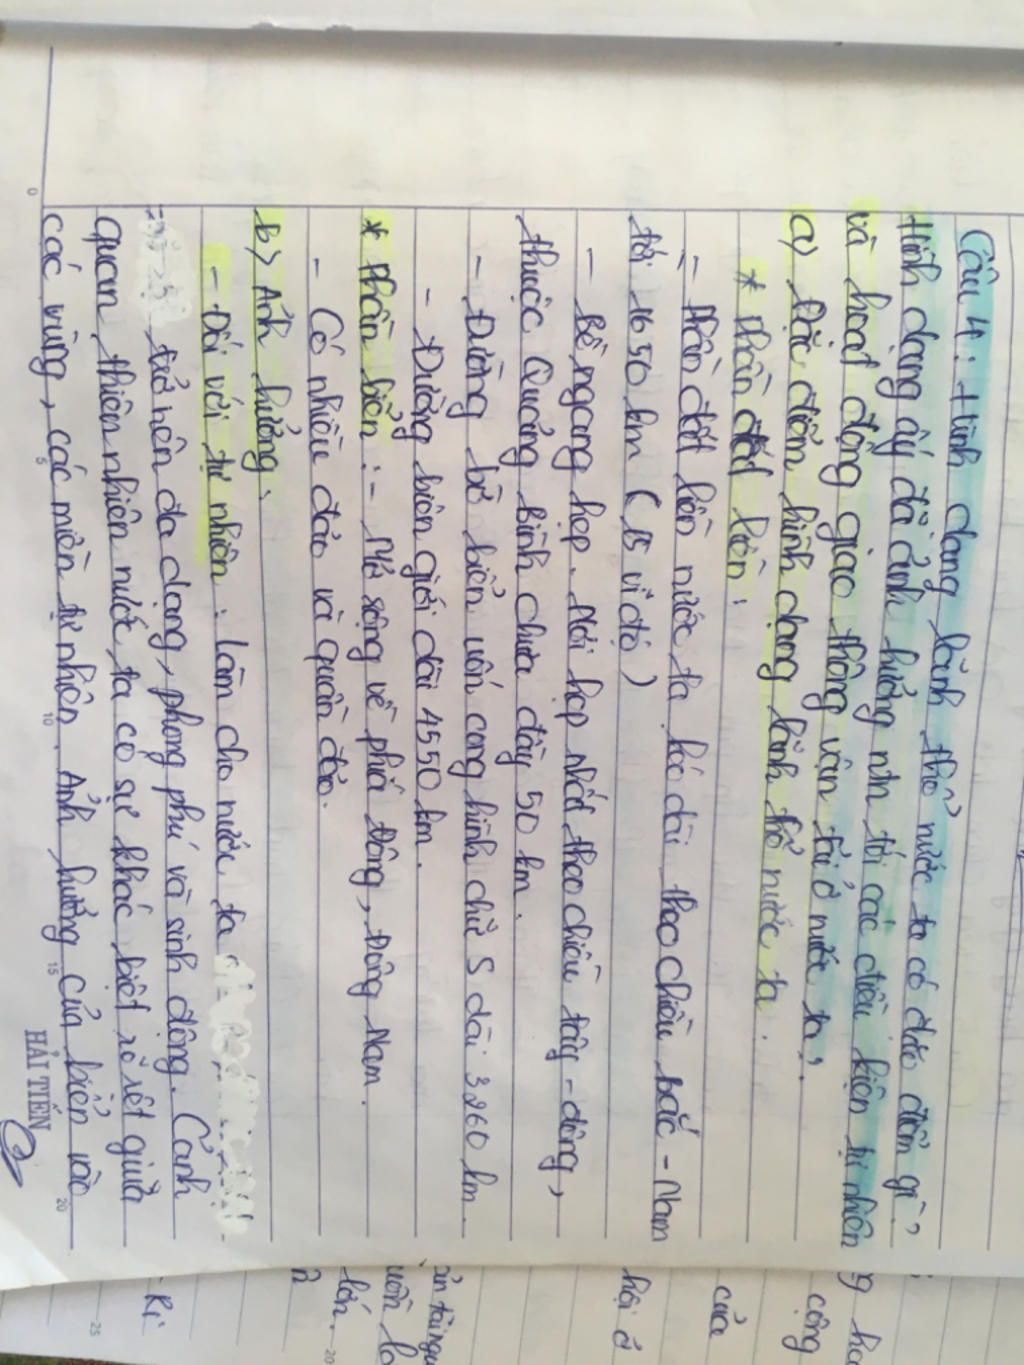 Câu 4: Hình dạng lãnh thổ nước ta có đặc điểm gì?
Hình dạng ấy đã ảnh hưởng ntn tới các điều kiện tự nhiên
và hoạt động giao thông vận tải ở nước ta?
a) Đặc điểm hình dạng lãnh thổ nước ta.
* Phần đất liền:
- Phần đất liền nước ta kéo dài theo chiều bắc - Nam
tới 1650 km (15 vĩ độ)
- Bề ngang hẹp. Nơi hẹp nhất theo chiều tây - đông,
thuộc Quảng Bình chưa đầy 50 km.
- Đường bờ biển uốn cong hình chữ S dài 3260 km.
- Đường biên giới dài 4550 km.
* Phần biển: - Mở rộng về phía Đông, Đông Nam.
- Có nhiều đảo và quần đảo.
b) Ảnh hưởng.
- Đối với tự nhiên: Làm cho nước ta
trở nên đa dạng, phong phú và sinh động. Cảnh
quan thiên nhiên nước ta có sự khác biệt rõ rệt giữa
các vùng, các miền tự nhiên. Ảnh hưởng của biển vào
HẢI TIẾN
0 5 10 15 20
công
của
hội ở
lớn.
20
25